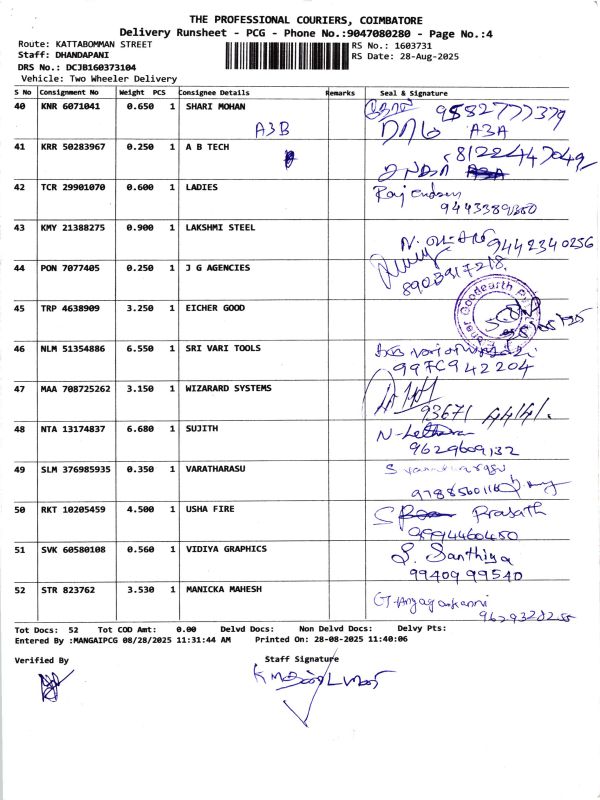 THE PROFESSIONAL COURIERS, COIMBATORE
Delivery Runsheet - PCG - Phone No.:9047080280 - Page No.:4
Route: KATTABOMMAN STREET
RS No.: 1603731
Staff: DHANDAPANI
RS Date: 28-Aug-2025
DRS No.: DCJB160373104
Vehicle: Two Wheeler Delivery
S No Consignment No Weight PCS Consignee Details Remarks Seal & Signature
40 KNR 6071041 0.650 1 SHARI MOHAN 9582777379
A3B A3A
41 KRR 50283967 0.250 1 A B TECH
42 TCR 29901070 0.600 1 LADIES
43 KMY 21388275 0.900 1 LAKSHMI STEEL 9442340256
44 PON 7077405 0.250 1 J G AGENCIES 8903917218.
45 TRP 4638909 3.250 1 EICHER GOOD Goodearth
46 NLM 51354886 6.550 1 SRI VARI TOOLS
47 MAA 708725262 3.150 1 WIZARARD SYSTEMS 93671 44141.
48 NTA 13174837 6.680 1 SUJITH
9629609132
49 SLM 376985935 0.350 1 VARATHARASU
50 RKT 10205459 4.500 1 USHA FIRE Prasath
9994460450
51 SVK 60580108 0.560 1 VIDIYA GRAPHICS S. Santhiya
99409 99540
52 STR 823762 3.530 1 MANICKA MAHESH
Tot Docs: 52 Tot COD Amt: 0.00 Delvd Docs: Non Delvd Docs: Delvy Pts:
Entered By :MANGAIPCG 08/28/2025 11:31:44 AM Printed On: 28-08-2025 11:40:06
Verified By Staff Signature